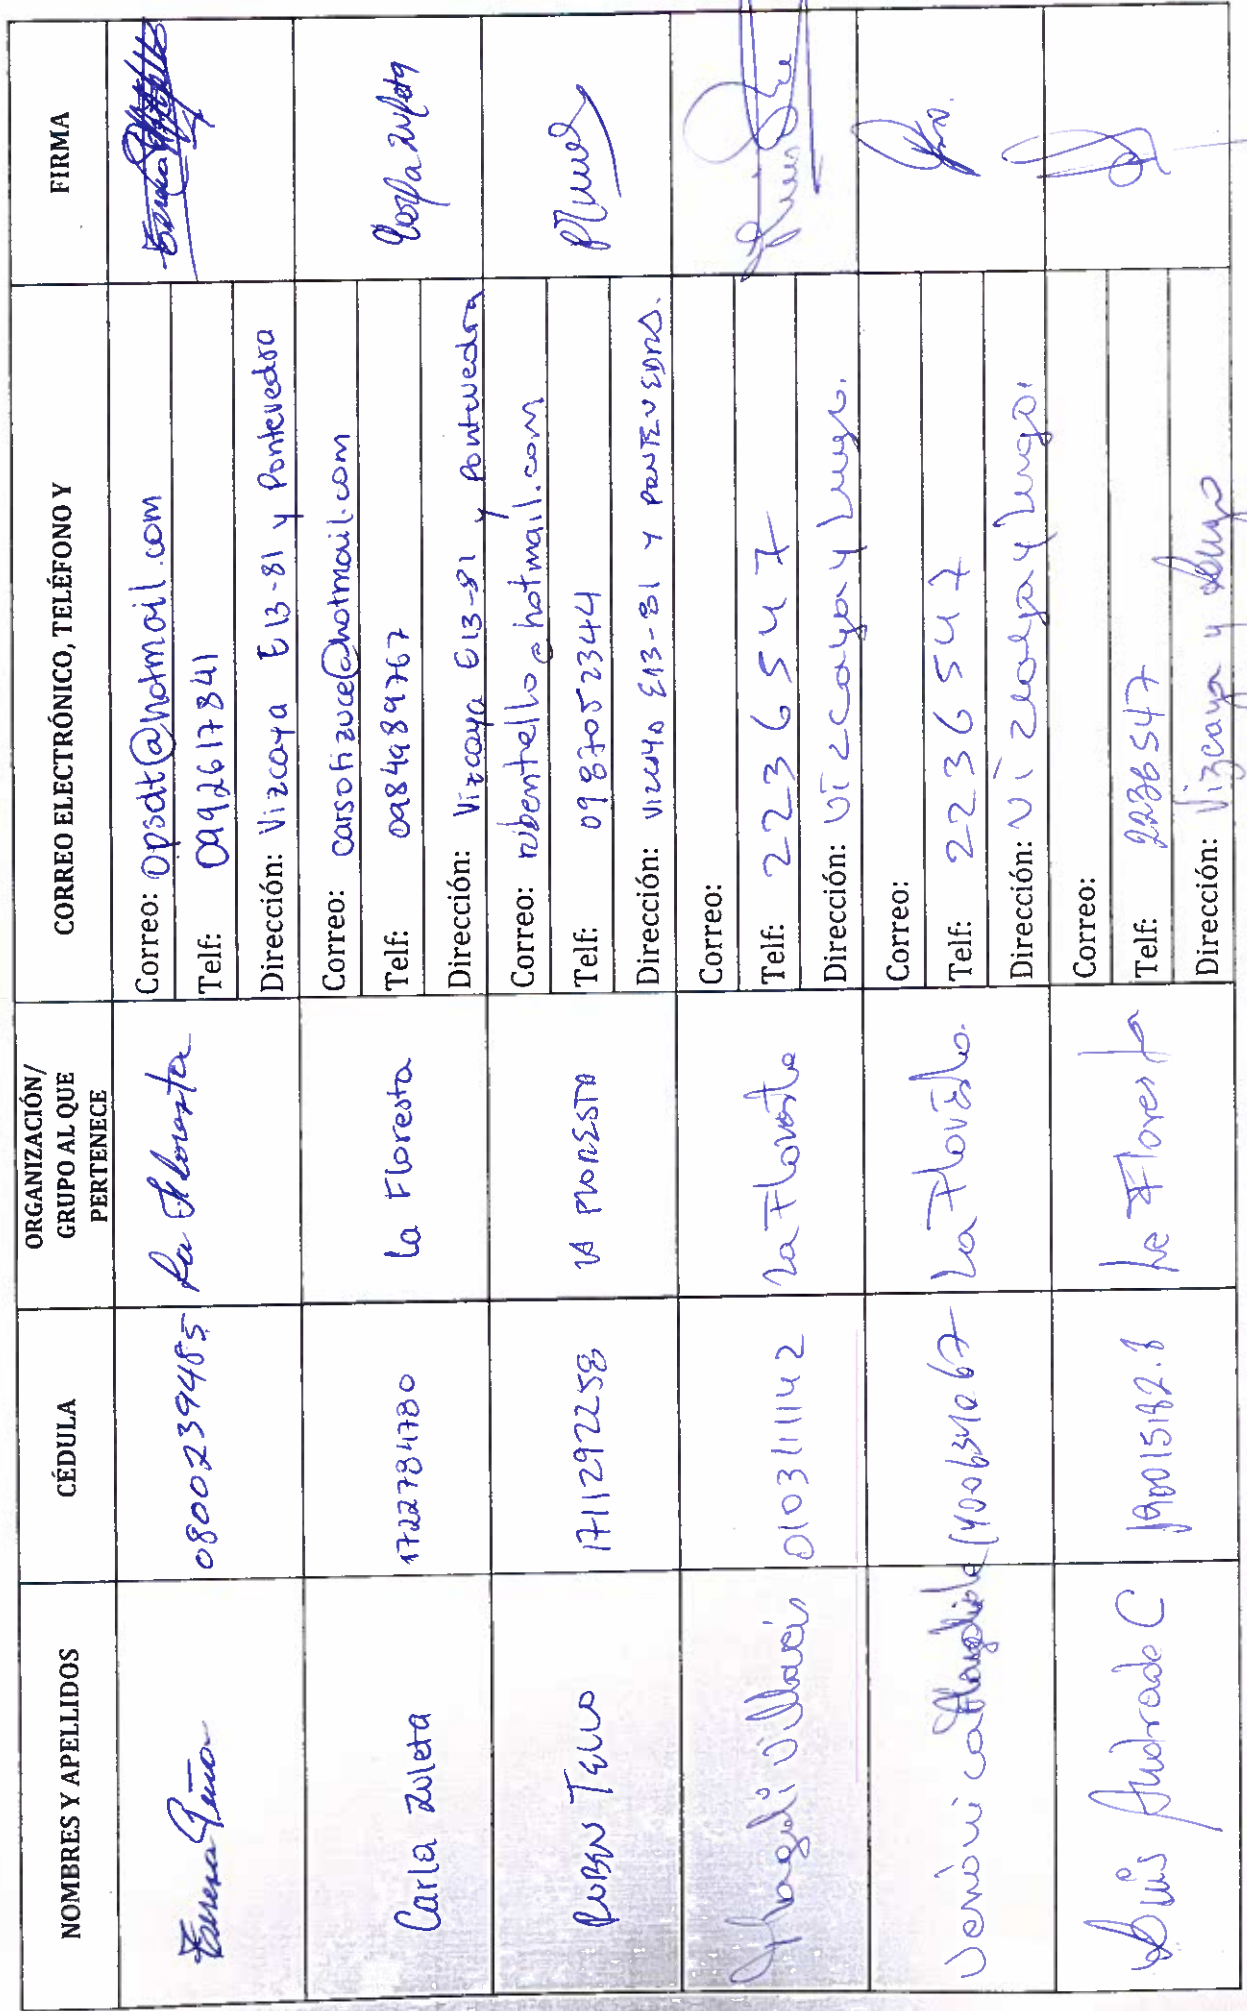 NOMBRES Y APELLIDOS CÉDULA ORGANIZACIÓN/ GRUPO AL QUE PERTENECE CORREO ELECTRÓNICO, TELÉFONO Y FIRMA
0800239485 La Floresta Correo: opsdt@hotmail.com
Telf: 0992617841
Dirección: Vizcaya E13-81 y Pontevedra
Carla Zuleta 1722784780 La Floresta Correo: carsofizuce@hotmail.com Carla Zuleta
Telf: 0984989767
Dirección: Vizcaya E13-81 y Pontevedra
RUBEN TELLO 1711292258 LA FLORESTA Correo: rubentello@hotmail.com
Telf: 0987052344
Dirección: VIZCAYA E13-81 Y PONTEVEDRA.
Magali Villacis 0103111142 La Floresta Correo:
Telf: 2236547
Dirección: Vizcaya y Lugo.
Veronica 1400634067 La Floresta. Correo:
Telf: 2236547
Dirección: Vizcaya y Lugo.
Luis Andrade C La Floresta Correo:
Telf: 2236547
Dirección: Vizcaya y Lugo